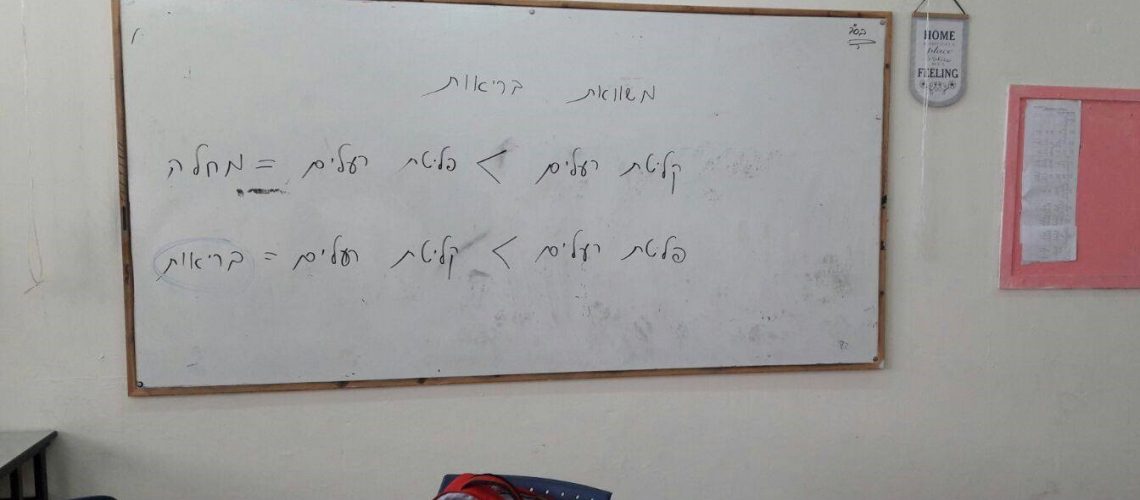 בס"ד
משוואת בריאות
קליטת רעלים < פליטת רעלים = מחלה
פליטת רעלים < קליטת רעלים = בריאות
HOME
place
FEELING